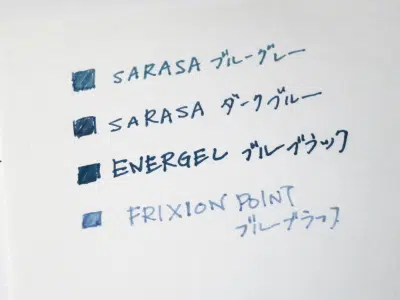 SARASA ブルーグレー
SARASA ダークブルー
ENERGEL ブルーブラック
FRIXION POINT
ブルーブラック